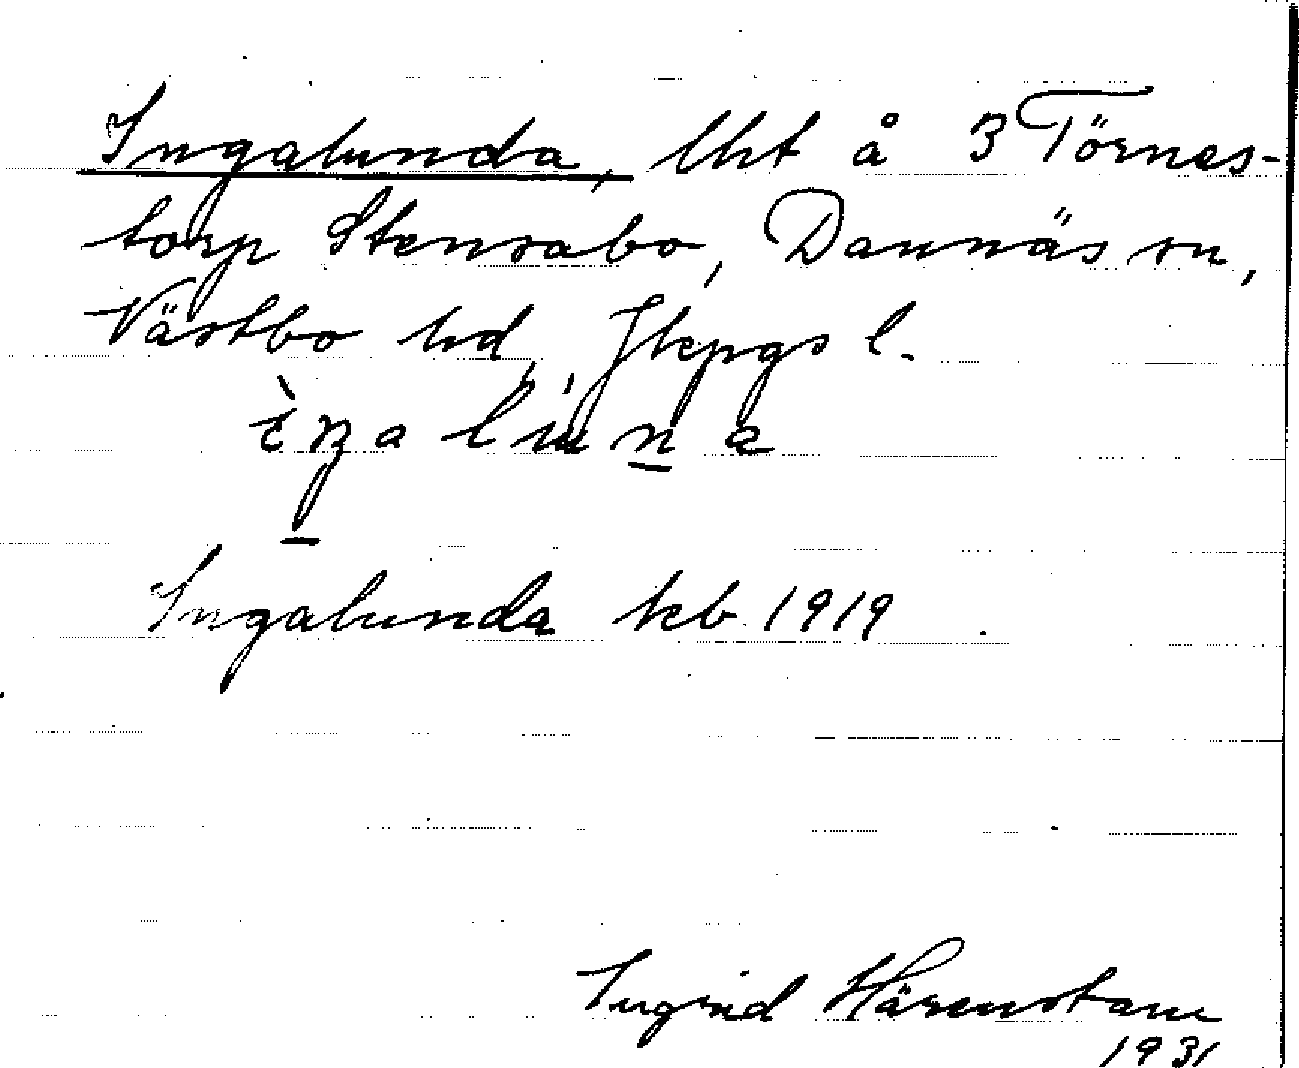 Ingalunda, lht å 3 Törnes-
torp Stensabo, Dannäs sn,
Västbo hd, Jkpgs l.
Ingalunda kb 1919
Ingrid Härenstam
1931